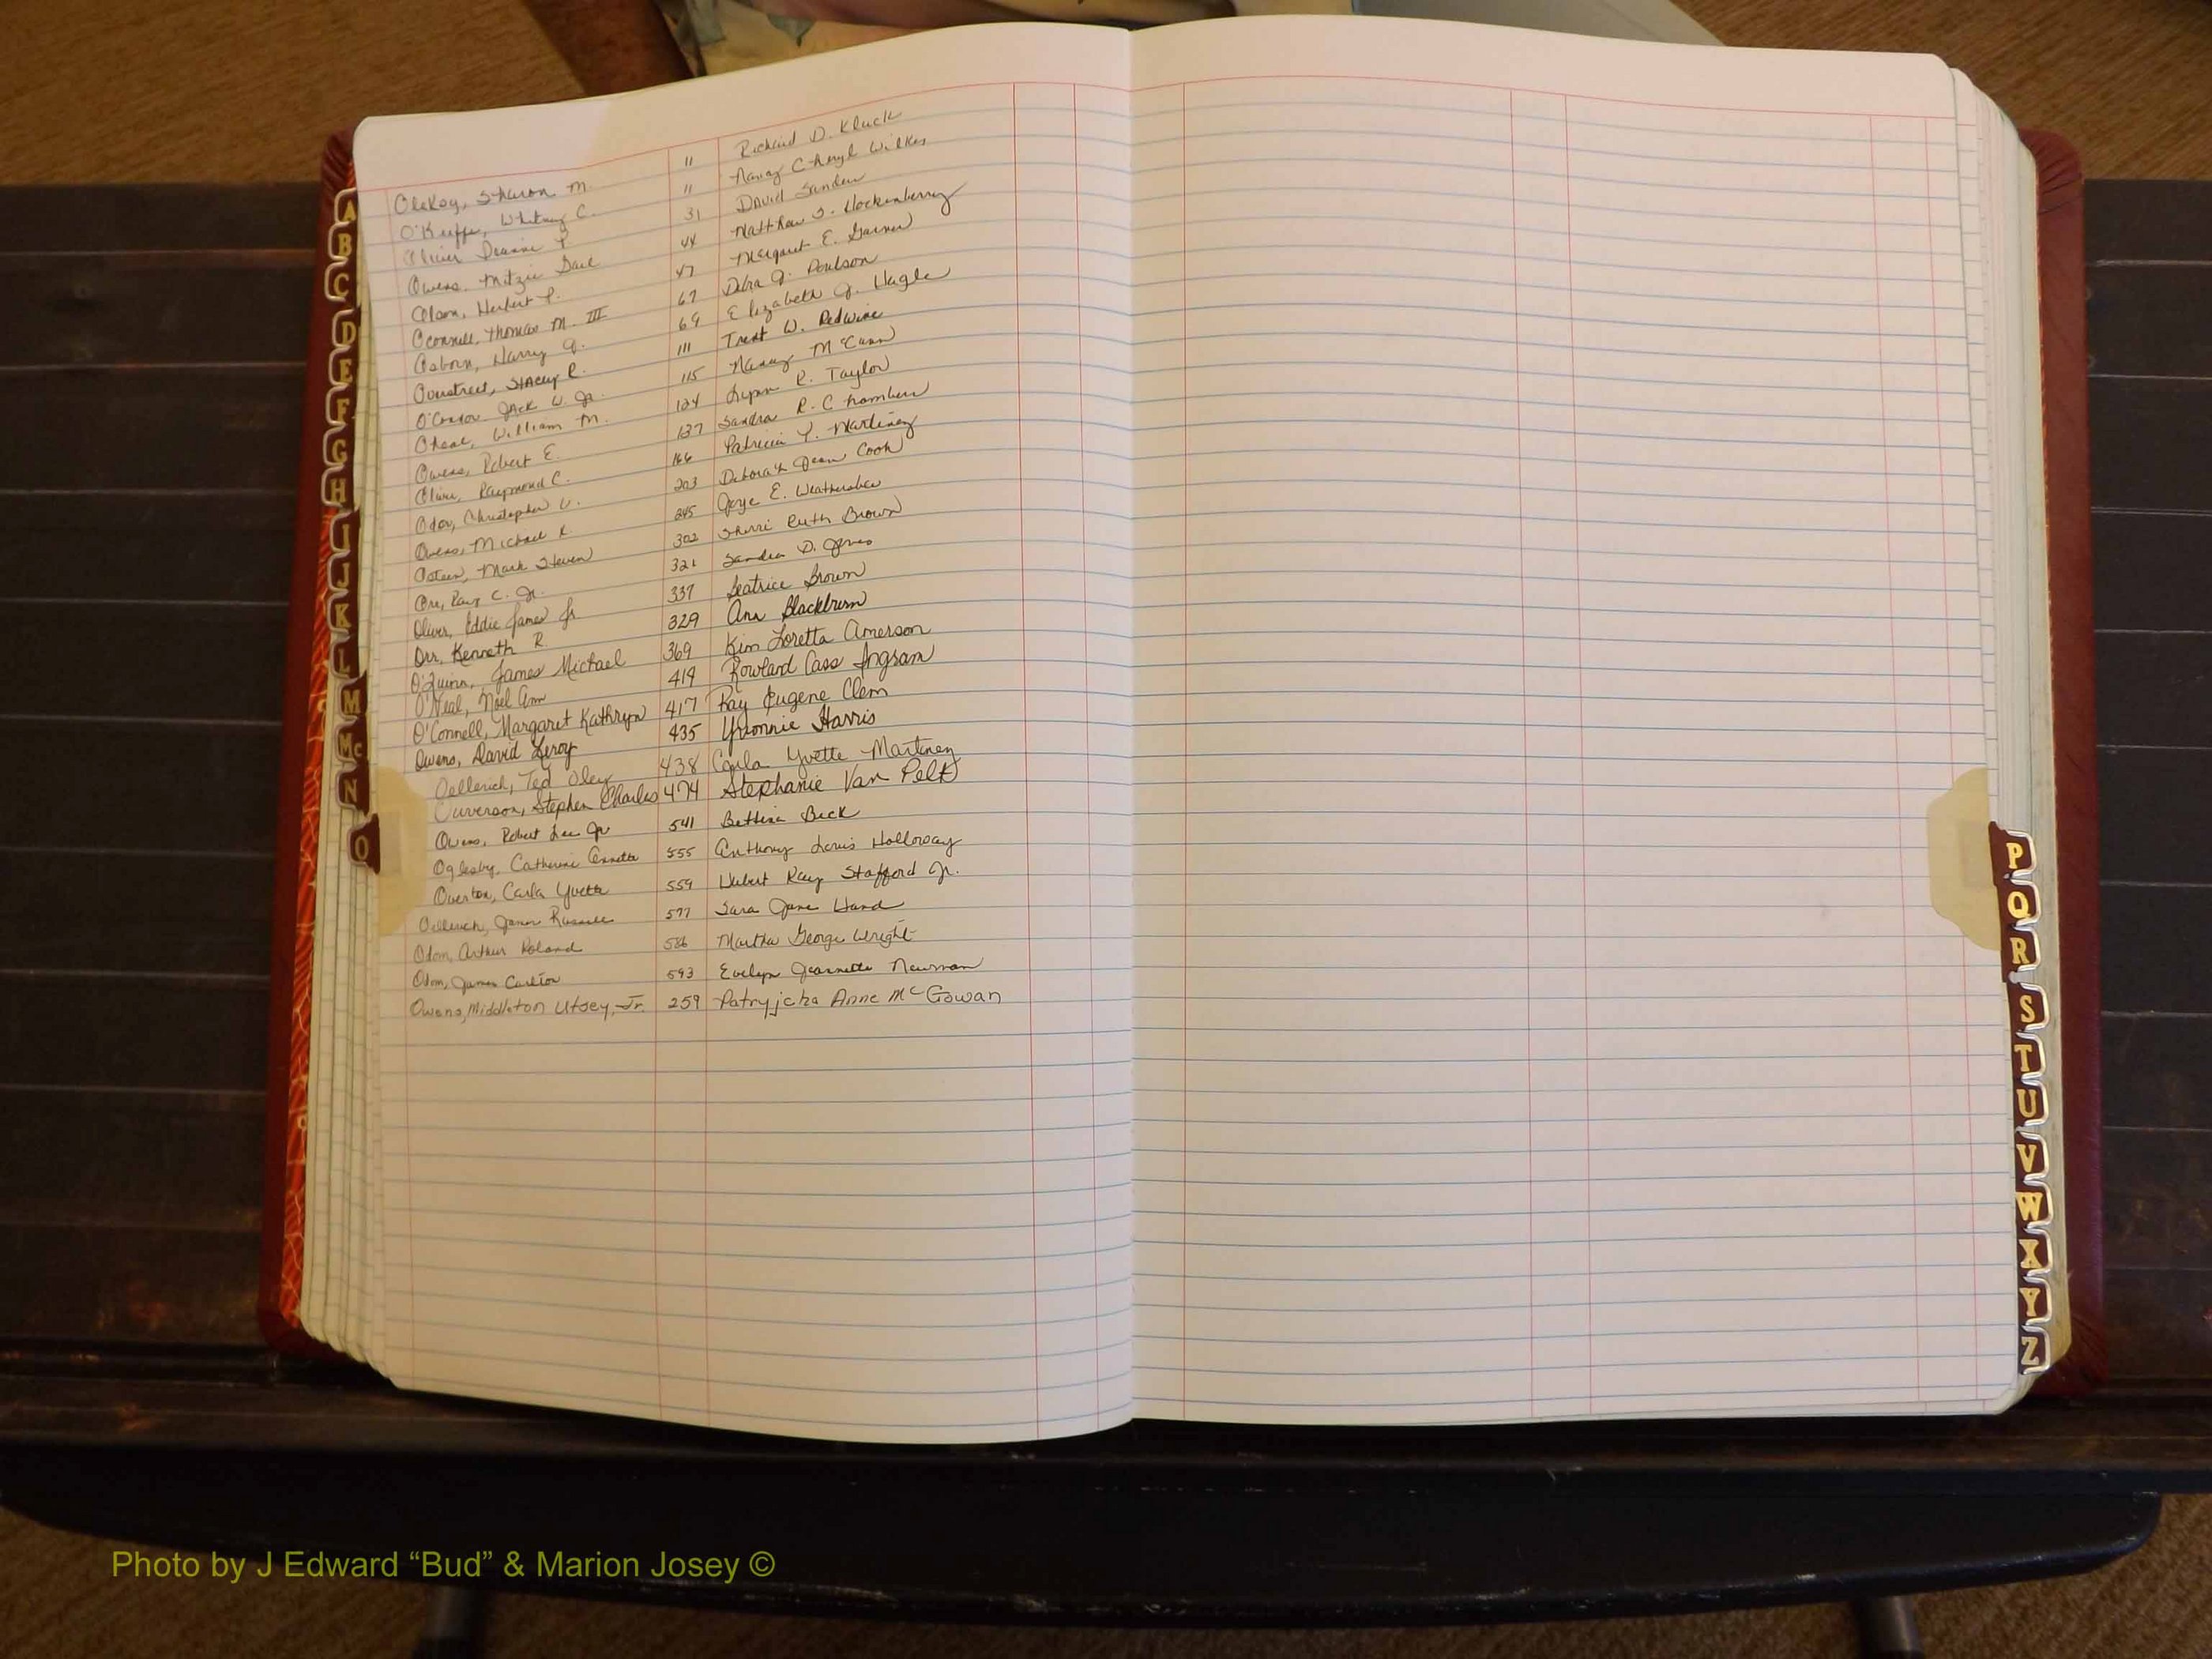 Sharon M. 11 Richard D. Kluck
O'Keeffe, Whitney C. 11 Nancy Cheryl Wilkes
Deanne 31 David Sanders
Owens, Mitzie Gail 44 Matthew J. Hockenberry
Olson, Herbert P. 47 Margaret E. Garner
Oconnell, Thomas M. III 67 Debra J. Poulson
Osborn, Harry J. 69 Elizabeth J. Hagle
Overstreet, Stacey R. 111 Trent W. Redwine
O'Connor Jack W. Jr. 115 Nancy McCann
William M. 124 Lynn R. Taylor
Owens, Robert E. 137 Sandra R. Chambers
Raymond C. 166 Patricia Y. Martinez
Odor, Christopher V. 203 Deborah Jean Cook
Owens, Michael R. 245 Joye E. Weathersbee
Osteen, Mark Steven 302 Sherri Ruth Brown
Orr, Ray C. Jr. 321 Sandra D. Jones
Oliver, Eddie James Jr 337 Beatrice Brown
Orr, Kenneth R. 329 Ann Blackburn
O'Quinn, James Michael 369 Kim Loretta Amerson
O'Neal, Noel Ann 419 Rowland Cass Ingram
O'Connell, Margaret Kathryn 417 Ray Eugene Clem
Owens, David Leroy 435 Yvonnie Harris
Oellerich, Ted Oley 438 Carla Yvette Martinez
Stephen Charles 474 Stephanie Van Pelt
Owens, Robert Lee Jr 541 Bettina Beck
Oglesby, Catherine Annette 555 Anthony Louis Holloway
Overton, Carla Yvette 559 Hubert Ray Stafford Jr.
Oellerich, James Russell 577 Sara Jane Hand
Odom, Arthur Roland 586 Martha George Wright
Odom, James Carlton 593 Evelyn Jeannette Newman
Owens, Middleton Utsey, Jr. 259 Patryjcka Anne McGowan
A
B
C
D
E
F
G
H
I
J
K
L
M
Mc
N
O
P
Q
R
S
T
U
V
W
X
Y
Z
Photo by J Edward “Bud” & Marion Josey ©